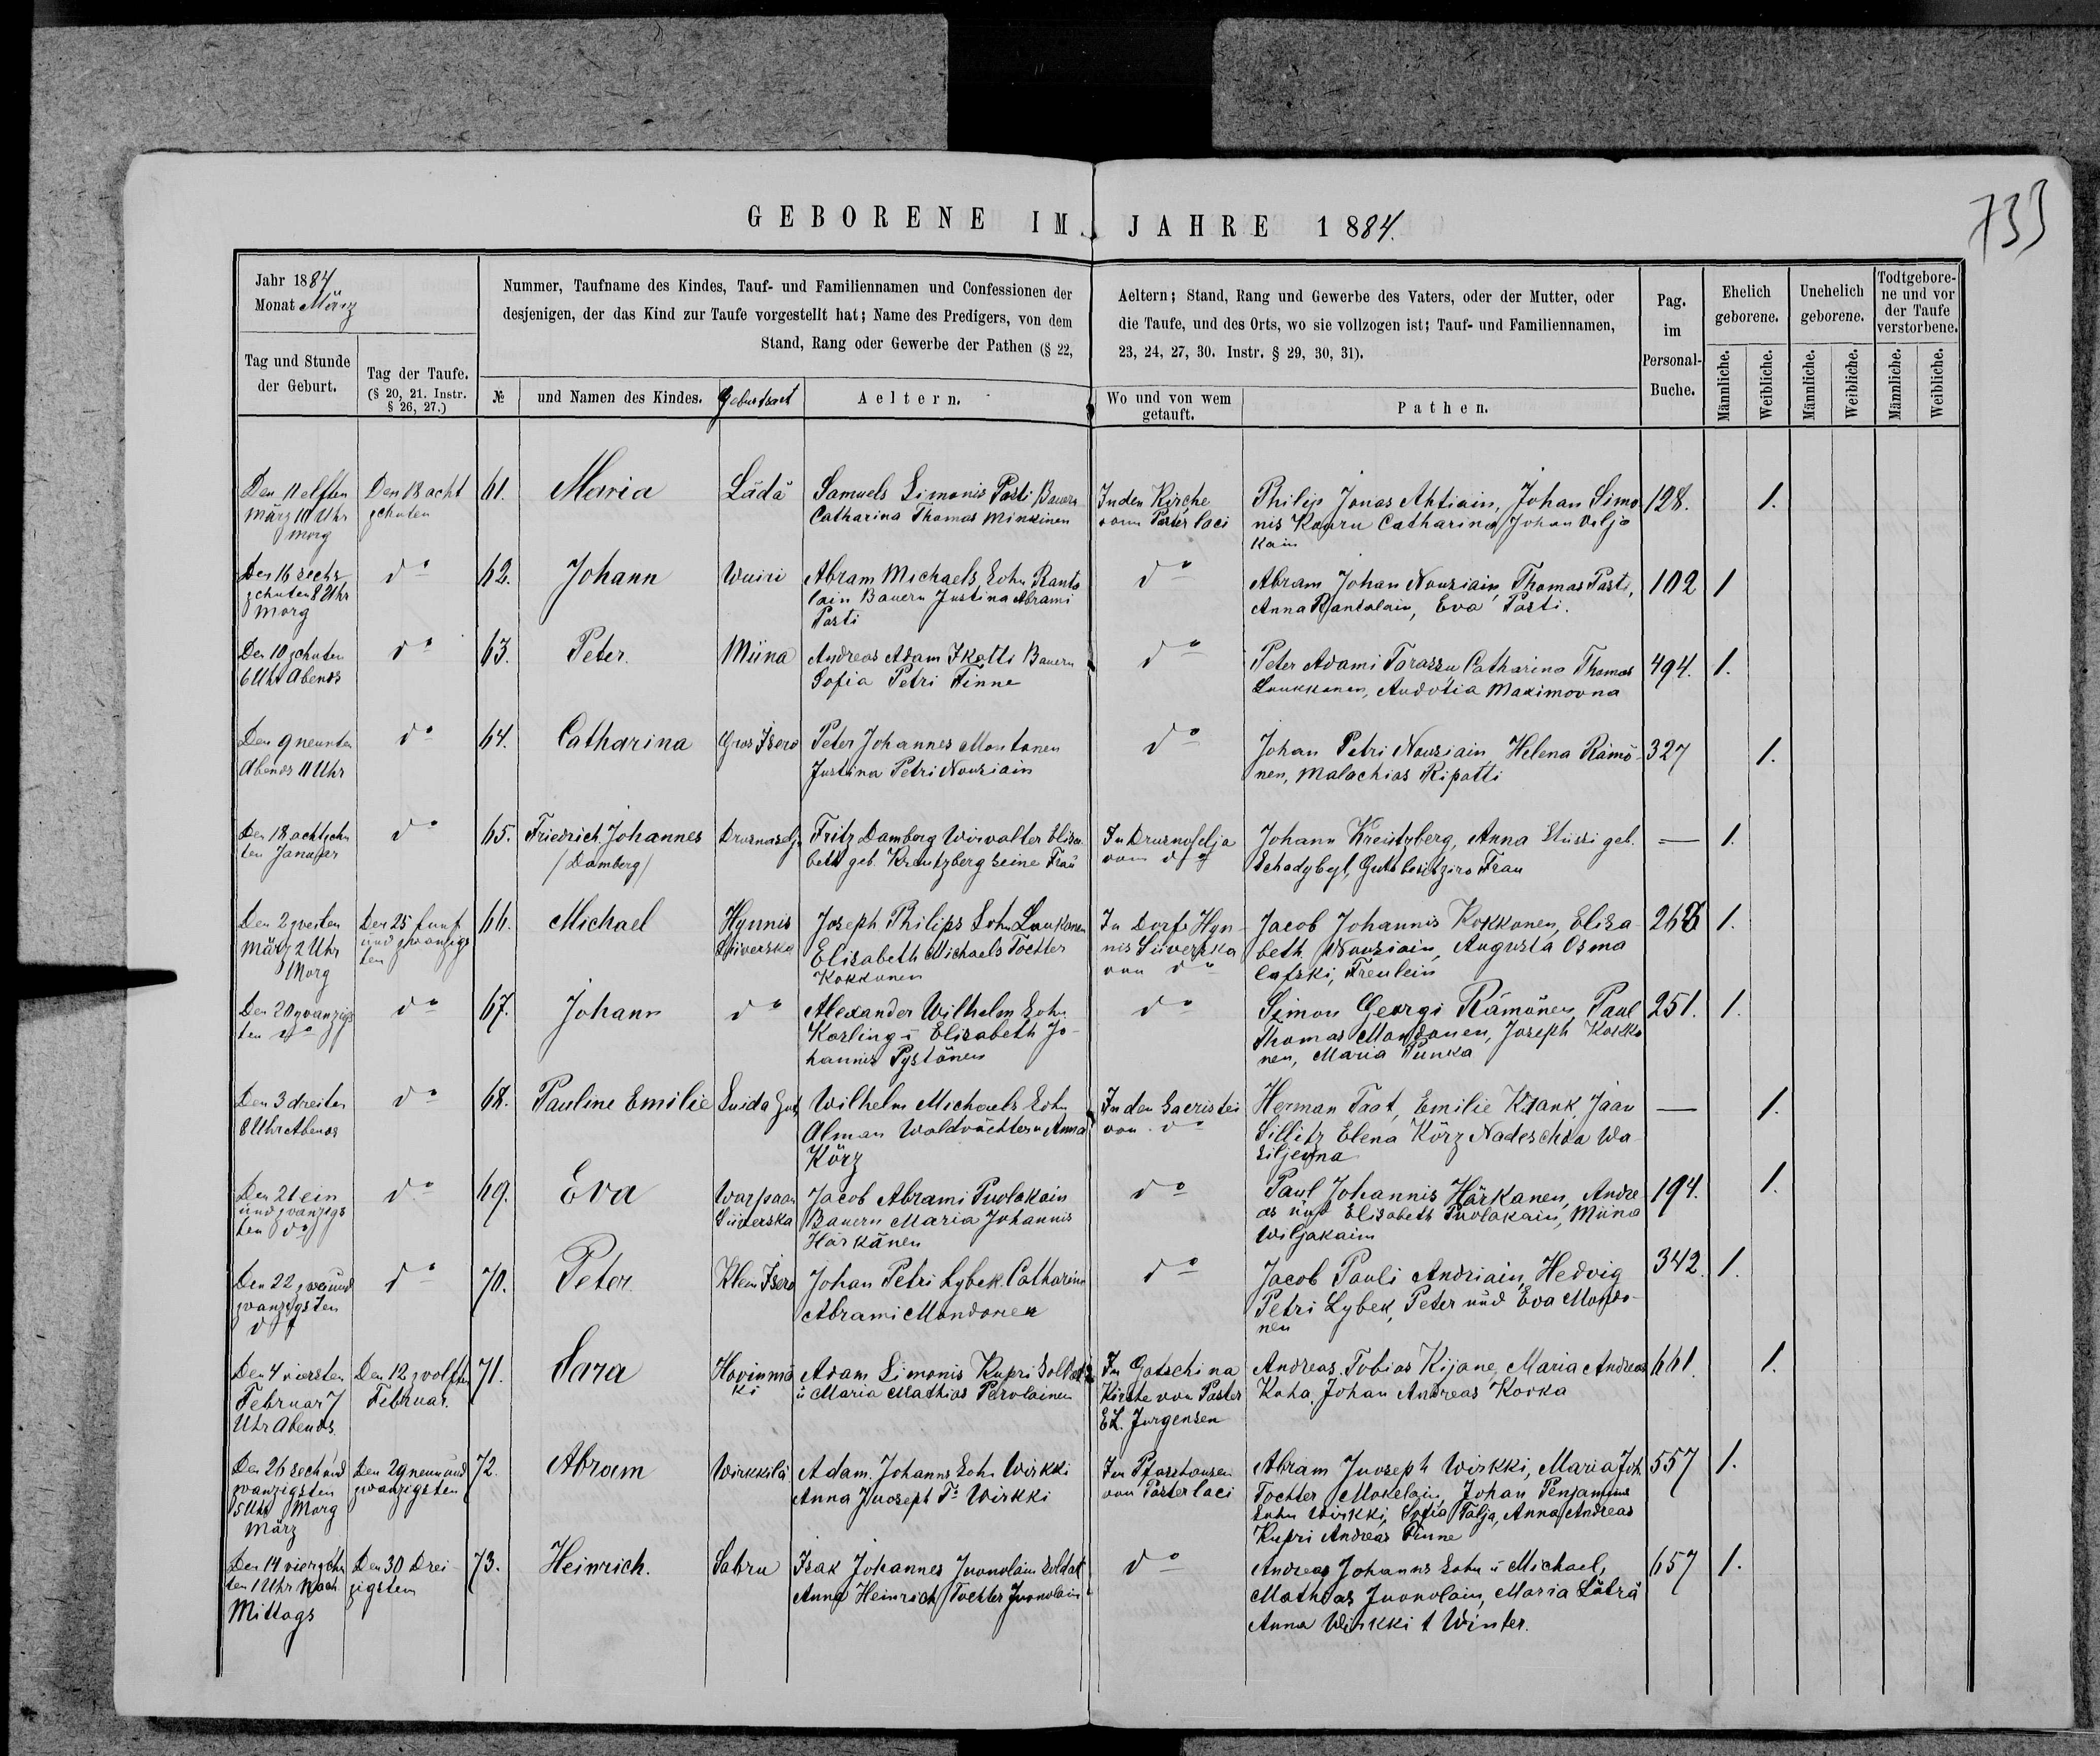 733
GEBORENE IM JAHRE 1884.
Jahr 1884
Monat März
Nummer, Taufname des Kindes, Tauf- und Familiennamen und Confessionen der
desjenigen, der das Kind zur Taufe vorgestellt hat; Name des Predigers, von dem
Stand, Rang oder Gewerbe der Pathen (§ 22,
Aeltern; Stand, Rang und Gewerbe des Vaters, oder der Mutter, oder
die Taufe, und des Orts, wo sie vollzogen ist; Tauf- und Familiennamen,
23, 24, 27, 30. Instr. § 29, 30, 31).
Pag.
im
Personal-
Buche.
Ehelich
geborene.
Unehelich
geborene.
Todtgebore-
ne und vor
der Taufe
verstorbene.
Tag und Stunde
der Geburt.
Tag der Taufe.
(§ 20, 21. Instr.
§ 26, 27.)
№
und Namen des Kindes.
Geburtsort
Aeltern.
Wo und von wem
getauft.
Pathen.
Männliche.
Weibliche.
Männliche.
Weibliche.
Männliche.
Weibliche.
Den 11 elften
März 10 Uhr
Morg
Den 18 acht
zehnten
61.
Maria
Lädä
Samuels Simonis Posti Bauern
Catharina Thomas Minkinen
In den Kirche
vom Paster loci
Philip Jonas Ahtiain, Johan Simo
nis Kauru Catharina Johan Vilja
kain
128.
1.
Den 16 sechs
zehnten 8 Uhr
Morg
do
62.
Johann
Wuiri
Abram Michaels Sohn Ranta
lain Bauern Justina Abrami
Posti
do
Abram Johan Nousiain, Thomas Posti,
Anna Rantalain, Eva Posti.
102
1
Den 10 zehnten
6 Uhr Abends
do
63.
Peter.
Miina
Andreas Adam Ikotti Bauern
Sofia Petri Finne
do
Peter Adami Tarassu Catharina Thomas
Laukkanen, Audotia Maximovna
494.
1.
Den 9 neunten
Abends 11 Uhr
do
64.
Catharina
Gros Isero
Peter Johannes Montonen
Justina Petri Nousiain
do
Johan Petri Nousiain Helena Rämö
nen, Malachias Ripatti
327
1.
Den 18 achtzehn
ten Januar
do
65.
Friedrich Johannes
(Damberg)
Drusnoselj
Fritz Damberg Wirvalter Elisa
beth geb. Kreutzberg seine Frau
In Drusnoselja
vom do
Johann Kreutzberg, Anna
geb.
Gutsbesitzirs Frau
—
1.
Den 2 zweiten
März 2 Uhr
Morg
Den 25 funf
und zwanzigs
ten
66.
Michael
Hynnis
Siiverska
Joseph Philips Sohn Laukanen
Elisabeth Michaels Tochter
Kokkonen
In Dorfe Hyn
nis Siiverska
von do
Jacob Johannis Kokkonen, Elisa
beth Nousiain, Augusta Osmo
lafski, Freulein
268
1.
Den 20 zwanzigs
ten do
do
67.
Johann
do
Alexander Wilhelm Sohn
Karling u Elisabeth Jo
hannis Pystönen
do
Simon Georgi Rämönen, Paul
Thomas Mondonen, Joseph Kokko
nen, Maria Punka
251.
1.
Den 3 dreiten
8 Uhr Abends
do
68.
Pauline Emilie
Suida Gut
Wilhelm Michaels Sohn
Alman Waldvächtern Anna
Körz
In den Sacristei
von do
Herman Taat, Emilie Krank Jaan
Sillitz Elena Körz Nadeschda Wa
siljevna
—
1.
Den 21 ein
und zvanzigs
ten do
do
69.
Eva
Warpaan
Siiverska
Jacob Abrami Puolakain
Bauern Maria Johannis
Härkänen
do
Paul Johannis Härkanen, Andre
as und Elisabeth Puolakain, Miina
Wiljakain
194.
1.
Den 22 zwei und
zvanzigsten
do
do
70.
Peter
Klein Isero
Johan Petri Lybek. Catharina
Abrami Mondonen
do
Jacob Pauli Andriain, Hedvig
Petri Lybek, Peter und Eva Mondo
nen
342.
1.
Den 4 viersten
Februar 7
Uhr Abends.
Den 12 zvolften
Februar.
71.
Sara
Hovinmä
ki
Adam Simonis Kupri Soldat
u Maria Mathias Pervlainen
In Gatschina
Kirche von Paster
E L. Jurgensen
Andreas Tobias Kijane, Maria Andreas
Koha. Johan Andreas Korka
661.
1.
Den 26 sech und
zvanzigsten
5 Uhr Morg
März
Den 29 neun und
zwanzigsten
72.
Abram
Wirkkilä
Adam. Johanns Sohn Wirkki
Anna Juoseph To Wirkki
Im Pfarrhausen
von Paster loci
Abram Juoseph Wirkki, Maria Joh
Tochter Mokelain, Johan Penjamins
Sohn Wirkki, Sofia Talja, Anna Andreas
Kupri Andreas Finne
557
1.
Den 14 vierzehn
ten 1 Uhr Nach
Mittags
Den 30 Drei
zigsten
73.
Heinrich.
Sabru
Isak Johannes Juonolain Soldat
Anna Heinrich Tochter Juonolain
do
Andreas Johanns Sohn u Michael,
Mathias Juonolain, Maria Läträ
Anna Wirkki t Winter.
657
1.